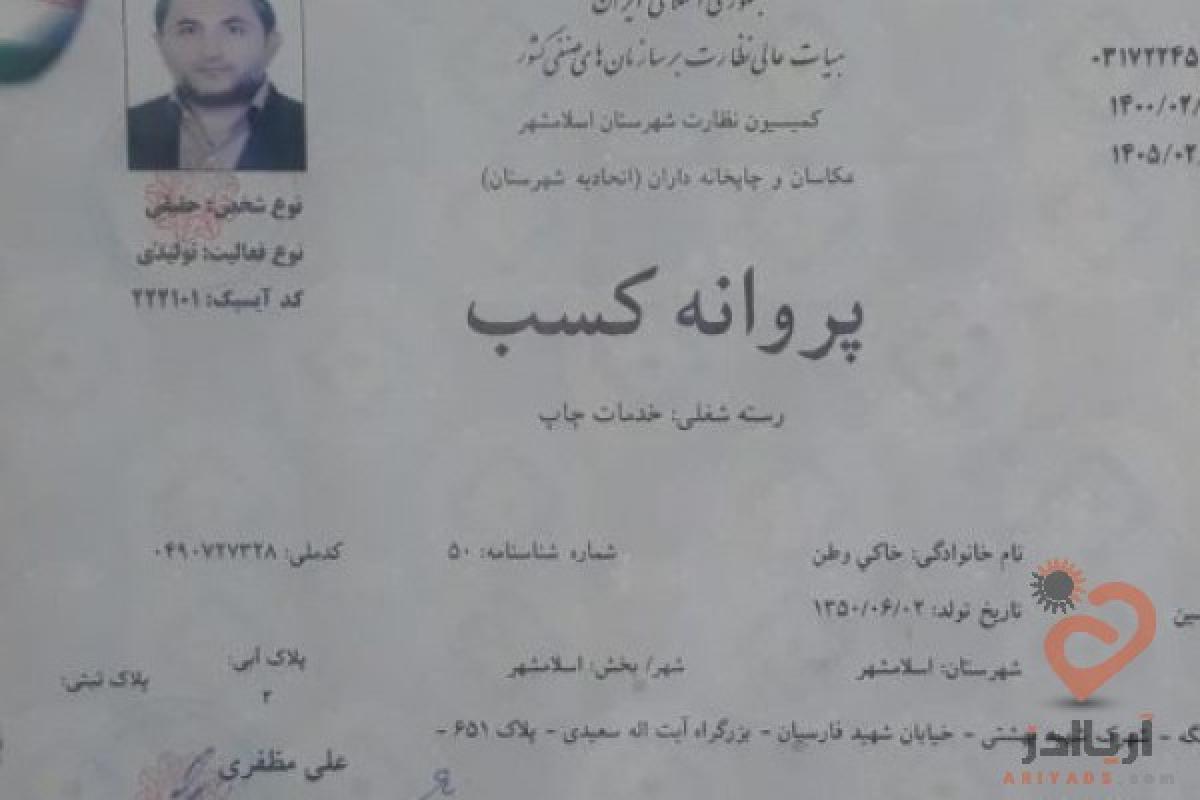 جمهوری اسلامی ایران
هیات عالی نظارت بر سازمان های صنفی کشور
کمیسیون نظارت شهرستان اسلامشهر
عکاسان و چاپخانه داران (اتحادیه شهرستان)
۰۳۱۷۲۲۴۵
۱۴۰۰/۰۲/
۱۴۰۵/۰۲
نوع شخص: حقیقی
نوع فعالیت: تولیدی
کد آیسیک: ۲۲۲۱۰۱
پروانه کسب
رسته شغلی: خدمات چاپ
نام خانوادگی: خاکی وطن شماره شناسنامه: ۵۰ کدملی: ۰۴۹۰۷۲۷۳۲۸
تاریخ تولد: ۱۳۵۰/۰۶/۰۲
شهرستان: اسلامشهر شهر/ بخش: اسلامشهر پلاک آبی: ۲ پلاک ثبتی:
خیابان شهید فارسیان - بزرگراه آیت اله سعیدی - پلاک ۶۵۱ -
علی مظفری
آریاادز
ARIYADS.com